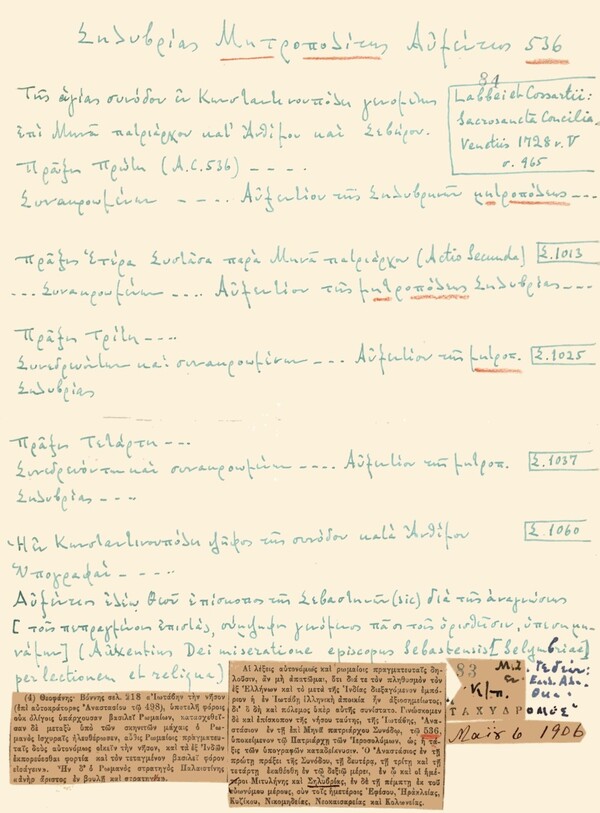 Σηλυβρίας Μητροπολίτης Αὐξέντιος 536
84
Τῆς ἁγίας συνόδου ἐν Κωνσταντινουπόλει γενομένης
ἐπὶ Μηνᾶ πατριάρχου κατ' Ἀνθίμου καὶ Σεβήρου.
Labbei et Cossartii:
Sacrosancta Concilia
Venetiis 1728 v. V
σ. 965
Πρᾶξις Πρώτη (A.C. 536) - - - -
Συνακροωμένων - - - - Αὐξεντίου τῆς Σηλυβριηνῶν μητροπόλεως ---
Πρᾶξις Ἑτέρα Συστᾶσα παρὰ Μηνᾶ πατριάρχου (Actio Secunda) Σ. 1013
... Συνακροωμένων .... Αὐξεντίου τῆς μητροπόλεως Σηλυβρίας ---
Πρᾶξις Τρίτη ----
Συνεδρευόντων καὶ συνακροωμένων --- Αὐξεντίου τῆς μητροπ. Σ. 1025
Σηλυβρίας
Πρᾶξις Τετάρτη ---
Συνεδρευόντων καὶ συνακροωμένων ---- Αὐξεντίου τῆς μητροπ. Σ. 1037
Σηλυβρίας ---
Ἡ ἐν Κωνσταντινουπόλει ψῆφος τῆς συνόδου κατὰ Ἀνθίμου Σ. 1060
Ὑπογραφαί - - - -
Αὐξέντιος ἐλέῳ Θεοῦ ἐπίσκοπος τῆς Σεβαστηνῶν (sic) διὰ τῆς ἀναγνώσεως
[τοῖς πεπραγμένοις ἐπιστάς, σύμψηφος γενόμενος πᾶσι τοῖς ὁρισθεῖσιν, ὑπεσημη-
νάμην] (Auxentius Dei miseratione episcopus Sebastensis [Selymbriae]
per lectionem et reliqua)
(4) Θεοφάνης Βόννης σελ. 218 «Ἰωτάβην τὴν νῆσον
(ἐπὶ αὐτοκράτορος Ἀναστασίου τῷ 498), ὑποτελῆ φόροις
οὐκ ὀλίγοις ὑπάρχουσαν βασιλεῖ Ῥωμαίων, κατασχεθεῖ-
σαν δὲ μεταξὺ ὑπὸ τῶν σκηνιτῶν μάχαις ὁ Ῥω-
μανὸς ἰσχυραῖς ἠλευθέρωσεν, αὖθις Ῥωμαίοις πραγματευ-
ταῖς δοὺς αὐτονόμως οἰκεῖν τὴν νῆσον, καὶ τὰ ἐξ Ἰνδῶν
ἐκπορεύεσθαι φορτία καὶ τὸν τεταγμένον βασιλεῖ φόρον
εἰσάγειν». Ἦν δ' ὁ Ῥωμανὸς στρατηγὸς Παλαιστίνης
«ἀνὴρ ἄριστος ἐν βουλῇ καὶ στρατηγίᾳ».
Αἱ λέξεις αὐτονόμως καὶ ρωμαίοις πραγματευταῖς δη-
λοῦσιν, ἂν μὴ ἀπατῶμαι, ὅτι διὰ τε τὸν πληθυσμὸν τὸν
ἐξ Ἑλλήνων καὶ τὸ μετὰ τῆς Ἰνδίας διεξαγόμενον ἐμπό-
ριον ἡ ἐν Ἰωτάβῃ ἑλληνικὴ ἀποικία ἦν ἀξιοσημείωτος,
δι' ὃ δὴ καὶ πόλεμος ὑπὲρ αὐτῆς συνίστατο. Γινώσκομεν
δὲ καὶ ἐπίσκοπον τῆς νήσου ταύτης, τῆς Ἰωτάβης, Ἀνα-
στάσιον ἐν τῇ ἐπὶ Μηνᾶ πατριάρχου Συνόδῳ, τῷ 536,
ὑποκείμενον τῷ Πατριάρχῃ τῶν Ἱεροσολύμων, ὡς ἡ τά-
ξις τῶν ὑπογραφῶν καταδεικνύει. Ὁ Ἀναστάσιος ἐν τῇ
πρώτῃ πράξει τῆς Συνόδου, τῇ δευτέρᾳ, τῇ τρίτῃ καὶ τῇ
τετάρτῃ ἐκαθέσθη ἐν τῷ δεξιῷ μέρει, ἐν ᾧ καὶ οἱ ἡμέ-
τεροι Μιτυλήνης καὶ Σηλυβρίας, ἐν δὲ τῇ πέμπτῃ ἐκ τοῦ
εὐωνύμου μέρους, σὺν τοῖς ἡμετέροις Ἐφέσου, Ἡρακλείας,
Κυζίκου, Νικομηδείας, Νεοκαισαρείας καὶ Κολωνείας.
83
Κ/π.
ΤΑΧΥΔΡΟΜΟΣ
Μαΐου 6 1906